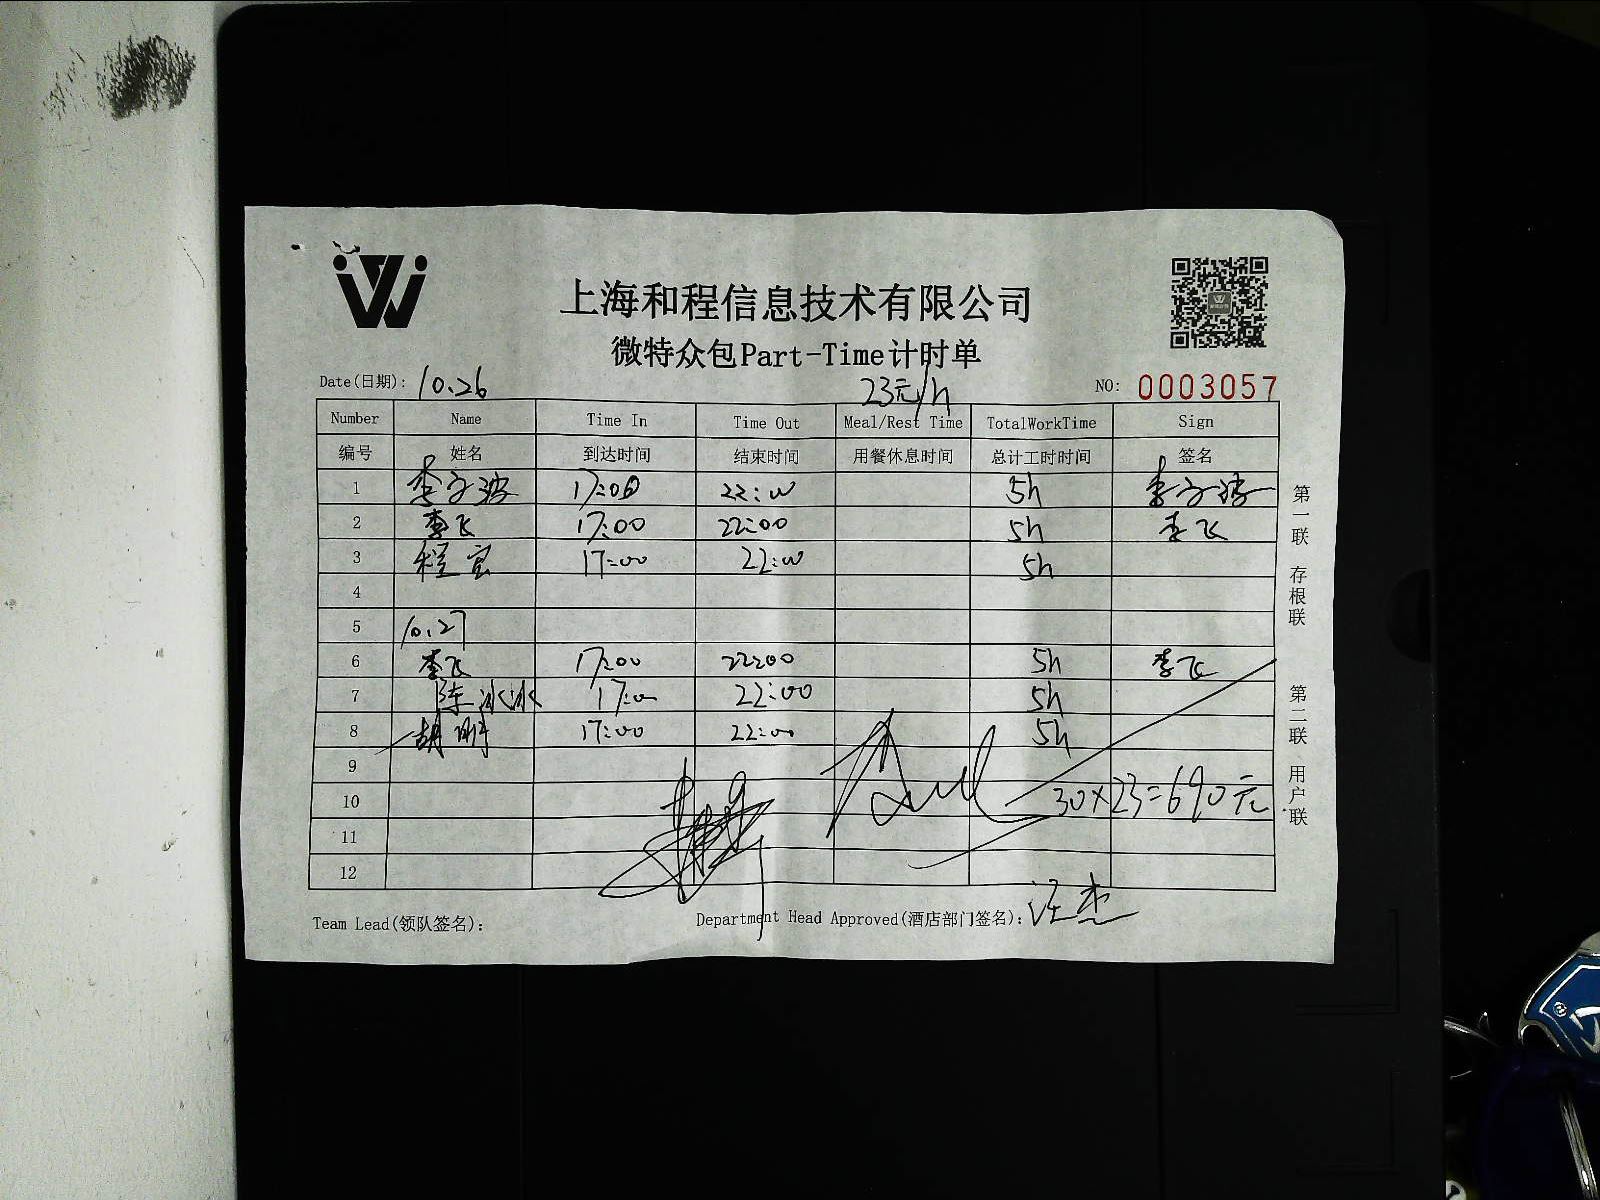 上海和程信息技术有限公司
微特众包Part-Time计时单
Date(日期): 10.26 23元/h NO: 0003057
Number Name Time In Time Out Meal/Rest Time TotalWorkTime Sign
编号 姓名 到达时间 结束时间 用餐休息时间 总计工时时间 签名
1 李子波 17:00 22:00 5h 李子波
2 李飞 17:00 22:00 5h 李飞
3 程宜 17:00 22:00 5h
4
5 10.27
6 李飞 17:00 22:00 5h 李飞
7 陈冰冰 17:00 22:00 5h
8 胡明 17:00 22:00 5h
9
10 30×23=690元
11
12
Team Lead(领队签名): Department Head Approved(酒店部门签名): 汪杰
第一联 存根联
第二联 用户联